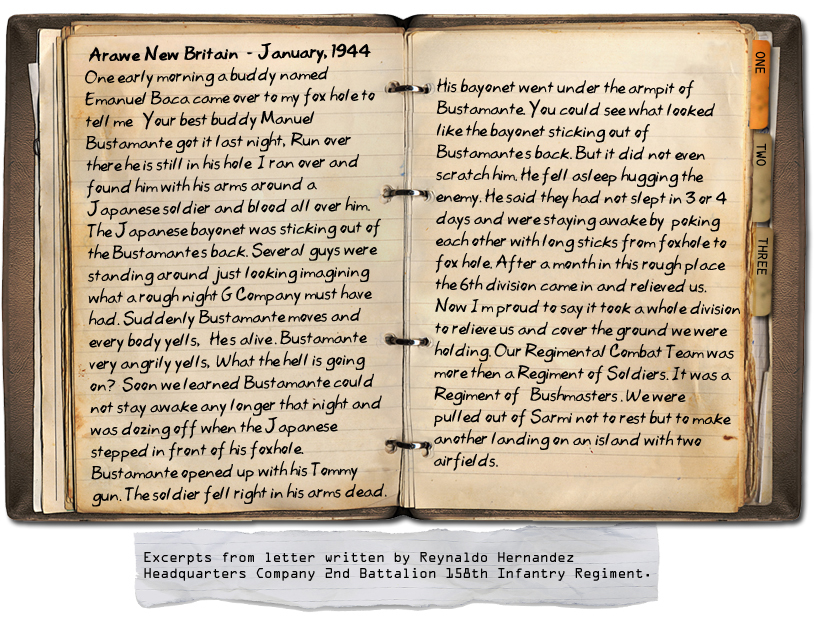 Arawe New Britain - January, 1944
One early morning a buddy named
Emanuel Baca came over to my fox hole to
tell me Your best buddy Manuel
Bustamante got it last night, Run over
there he is still in his hole I ran over and
found him with his arms around a
Japanese soldier and blood all over him.
The Japanese bayonet was sticking out of
the Bustamantes back. Several guys were
standing around just looking imagining
what a rough night G Company must have
had. Suddenly Bustamante moves and
every body yells, Hes alive. Bustamante
very angrily yells, What the hell is going
on? Soon we learned Bustamante could
not stay awake any longer that night and
was dozing off when the Japanese
stepped in front of his foxhole.
Bustamante opened up with his Tommy
gun. The soldier fell right in his arms dead.
His bayonet went under the armpit of
Bustamante. You could see what looked
like the bayonet sticking out of
Bustamantes back. But it did not even
scratch him. He fell asleep hugging the
enemy. He said they had not slept in 3 or 4
days and were staying awake by poking
each other with long sticks from foxhole to
fox hole. After a month in this rough place
the 6th division came in and relieved us.
Now I m proud to say it took a whole division
to relieve us and cover the ground we were
holding. Our Regimental Combat Team was
more then a Regiment of Soldiers. It was a
Regiment of Bushmasters. We were
pulled out of Sarmi not to rest but to make
another landing on an island with two
airfields.
ONE
TWO
THREE
Excerpts from letter written by Reynaldo Hernandez
Headquarters Company 2nd Battalion 158th Infantry Regiment.